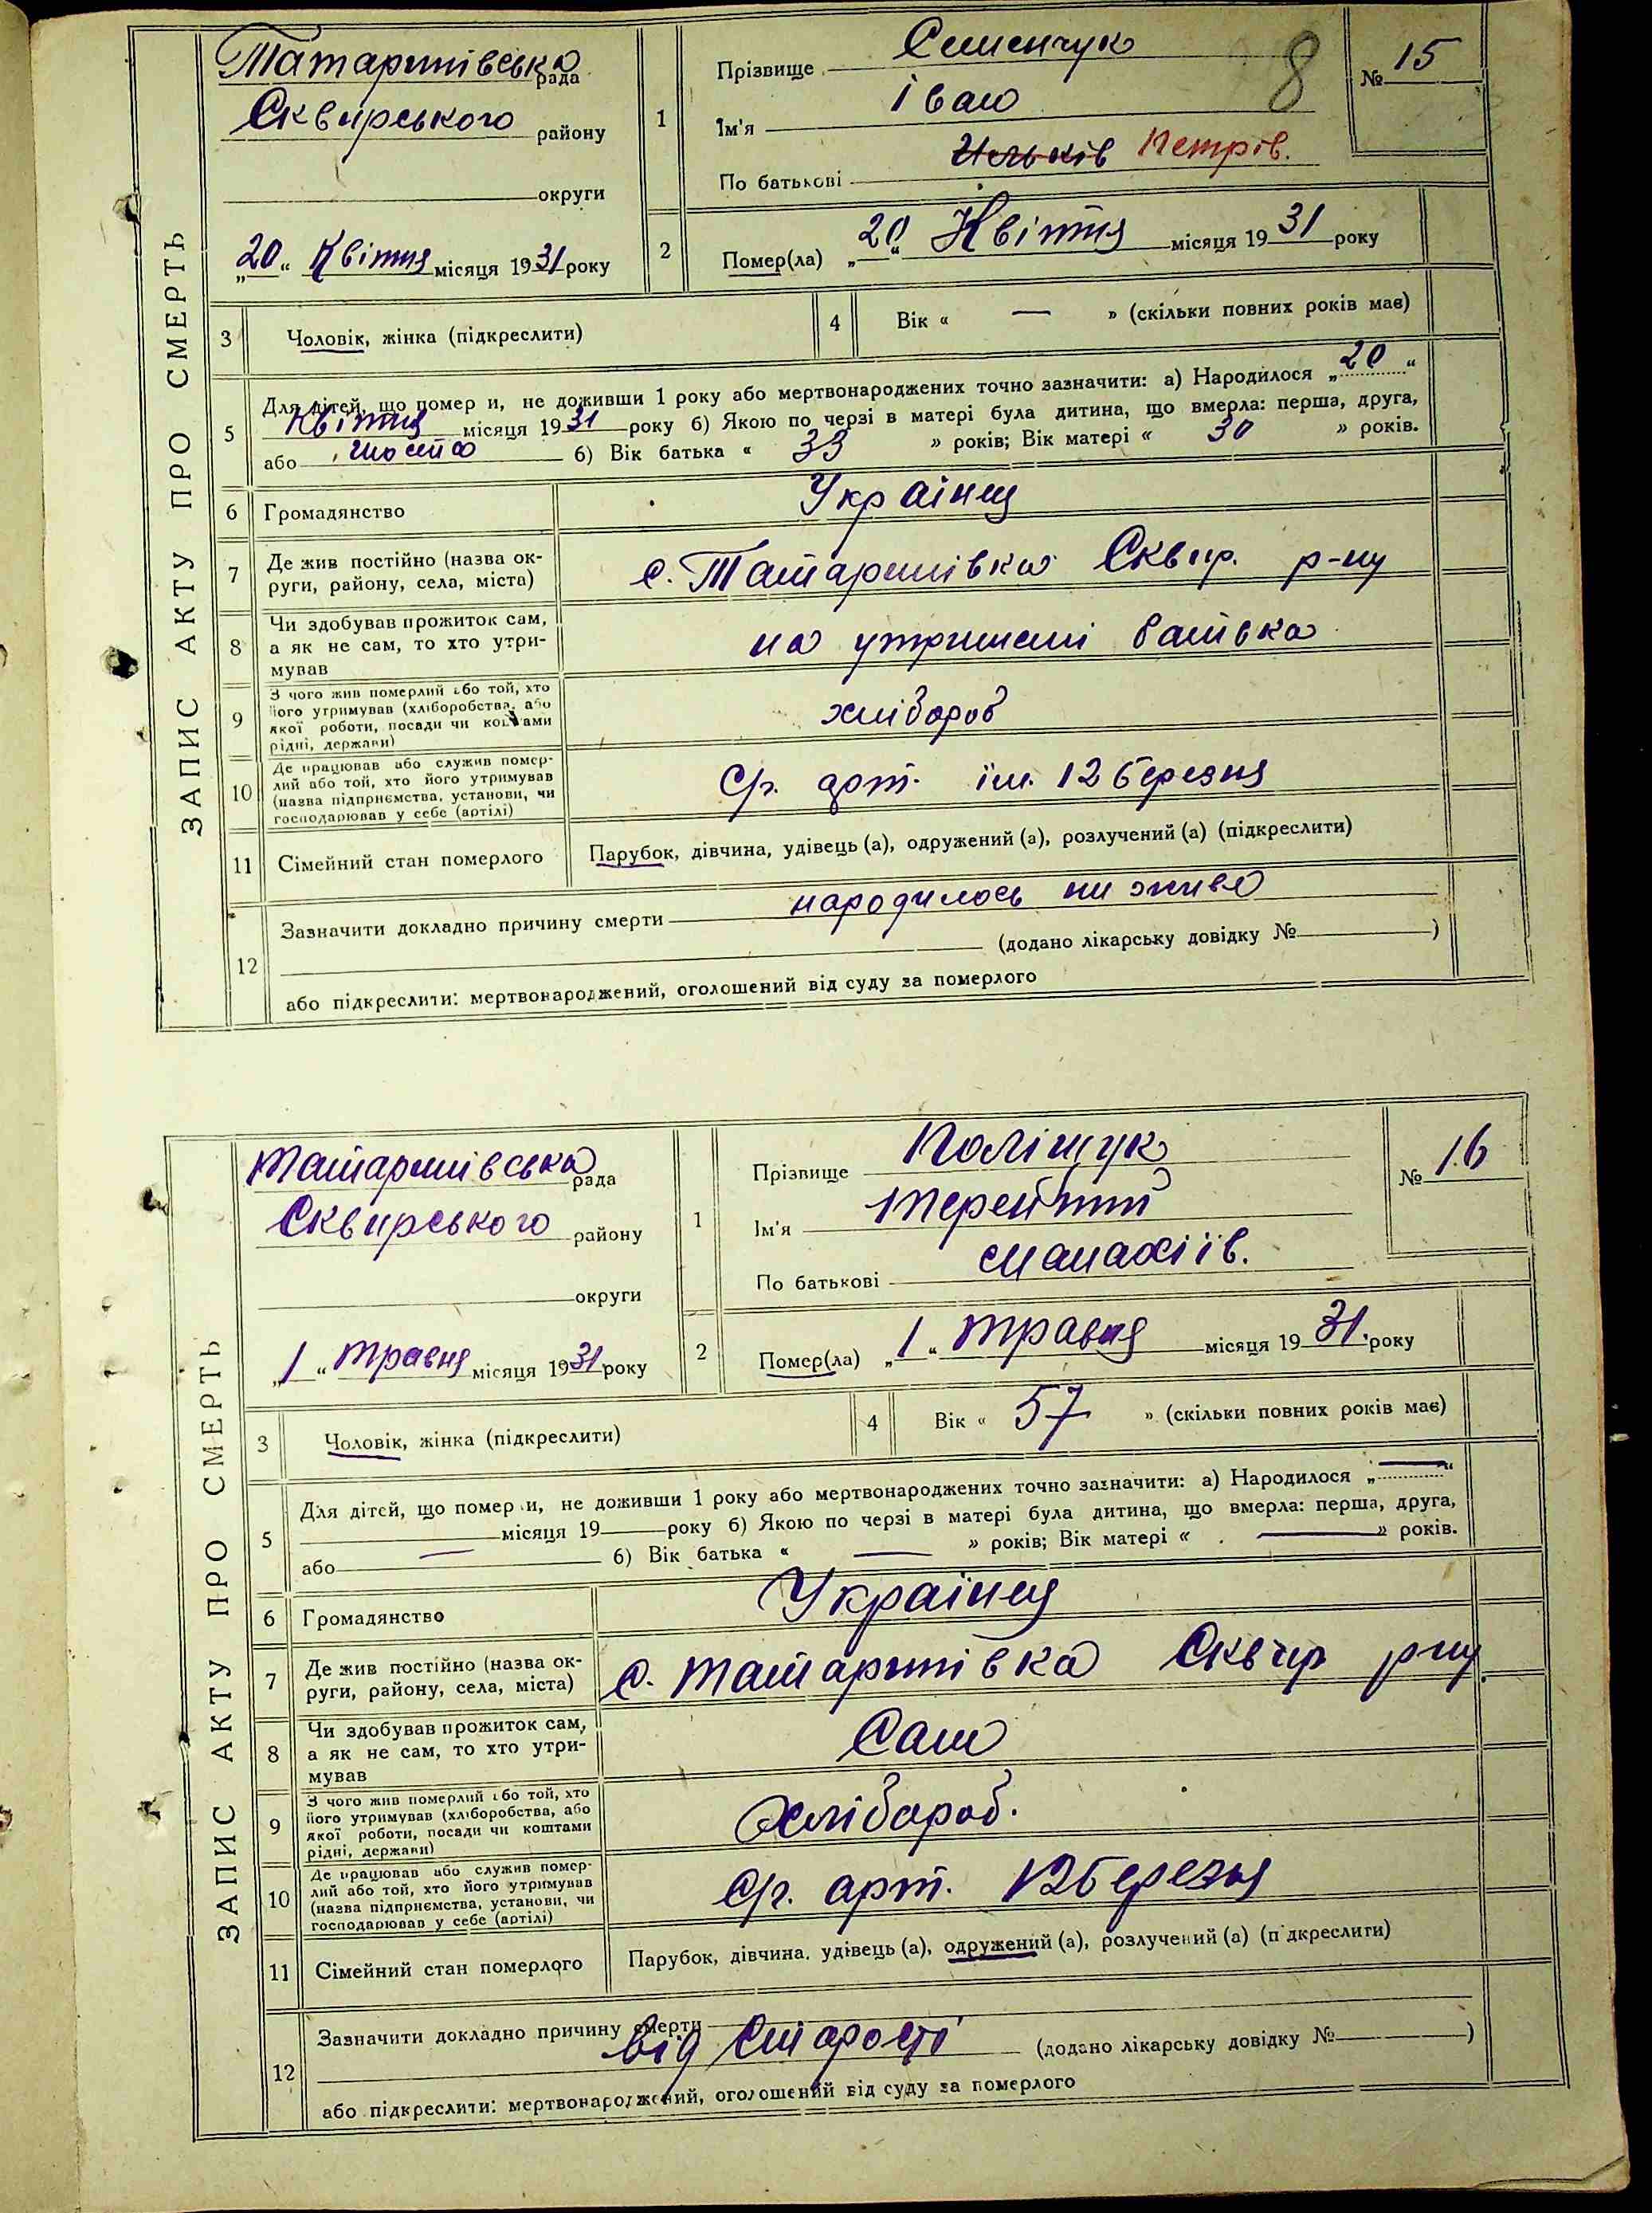 ЗАПИС АКТУ ПРО СМЕРТЬ
Татаринівська рада
Сквирського району
округи
„20“ Квітня місяця 1931 року
1
Прізвище Семенчук
8
Ім'я Іван
По батькові Ільків Петрів.
№ 15
2
Помер(ла) „20“ Квітня місяця 1931 року
3 Чоловік, жінка (підкреслити)
4 Вік « — » (скільки повних років має)
5
Для дітей, що помер и, не доживши 1 року або мертвонароджених точно зазначити: а) Народилося „20“
Квітня місяця 1931 року б) Якою по черзі в матері була дитина, що вмерла: перша, друга,
або шоста б) Вік батька « 33 » років; Вік матері « 30 » років.
6 Громадянство Українец
7 Де жив постійно (назва ок-
руги, району, села, міста)
с. Татаринівка Сквир. р-ну
8 Чи здобував прожиток сам,
а як не сам, то хто утри-
мував
на утримані батька
9 З чого жив померлий або той, хто
його утримував (хліборобства, або
якої роботи, посади чи коштами
рідні, держави)
хлібороб
10 Де працював або служив помер-
лий або той, хто його утримував
(назва підприємства, установи, чи
господарював у себе (артілі)
Ср. арт. їм. 12 березня
11 Сімейний стан померлого
Парубок, дівчина, удівець (а), одружений (а), розлучений (а) (підкреслити)
12
Зазначити докладно причину смерти народилось ни живо
(додано лікарську довідку № )
або підкреслити: мертвонароджений, оголошений від суду за померлого
ЗАПИС АКТУ ПРО СМЕРТЬ
Татаринівська рада
Сквирського району
округи
„1“ травня місяця 1931 року
1
Прізвище Поліщук
Ім'я Терентій
По батькові
№ 16
2
Помер(ла) „1“ травня місяця 1931 року
3 Чоловік, жінка (підкреслити)
4 Вік « 57 » (скільки повних років має)
5
Для дітей, що помер и, не доживши 1 року або мертвонароджених точно зазначити: а) Народилося „—“
місяця 19 року б) Якою по черзі в матері була дитина, що вмерла: перша, друга,
або — б) Вік батька « — » років; Вік матері « — » років.
6 Громадянство Українец
7 Де жив постійно (назва ок-
руги, району, села, міста)
с. Татаринівка Сквир рну
8 Чи здобував прожиток сам,
а як не сам, то хто утри-
мував
Сам
9 З чого жив померлий або той, хто
його утримував (хліборобства, або
якої роботи, посади чи коштами
рідні, держави)
хлібороб.
10 Де працював або служив помер-
лий або той, хто його утримував
(назва підприємства, установи, чи
господарював у себе (артілі)
Ср. арт. 12 березня
11 Сімейний стан померлого
Парубок, дівчина, удівець (а), одружений (а), розлучений (а) (підкреслити)
12
Зазначити докладно причину смерти
від старості (додано лікарську довідку № )
або підкреслити: мертвонароджений, оголошений від суду за померлого